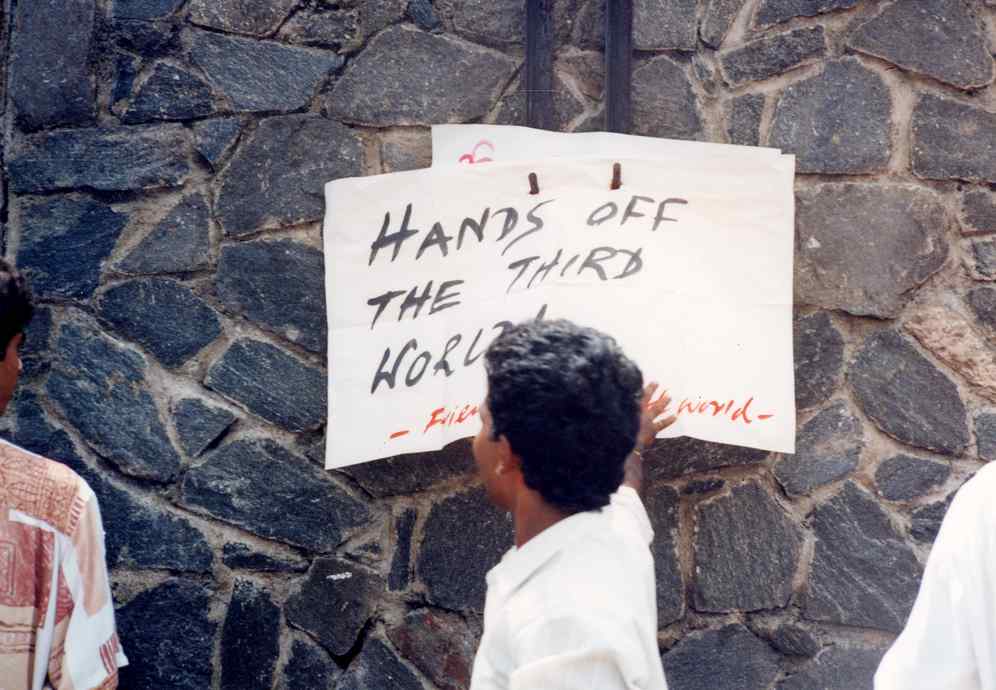 HANDS OFF
THE THIRD
WORLD
- Frien World -